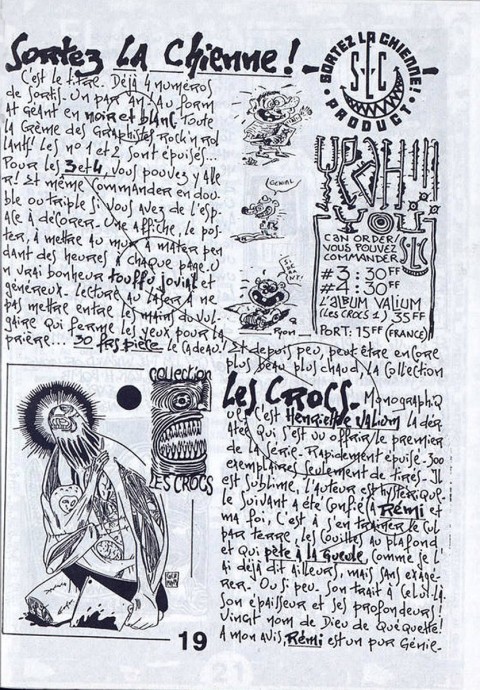 Sortez LA Chienne !
C'est le titre. Déjà 4 numéros
de sortis. Un par an. Au form
at Géant en noir et blanc. Toute
la Crème des Graphistes Rock'n rol
lants! Les no 1 et 2 sont épuisés...
Pour les 3 et 4, vous pouvez y Alle
r! Et même commander en dou-
ble ou triple si vous avez de l'esp-
ace à décorer. Une affiche, le pos-
ter, à mettre au mur, à mater pen
dant des heures à chaque page. U
n vrai bonheur touffu jovial et
généreux. Lecture au laser à ne
pas mettre entre les mains du vul-
gaire qui ferme les yeux pour la
prière... 30 frs pièce le cadeau!
GÉNIAL
SORTEZ LA CHIENNE!
SLC
PRODUCT
YEAH!!!
YOU
CAN ORDER/
VOUS POUVEZ
COMMANDER
SLC
#3 : 30FF
#4 : 30FF
L'ALBUM VALIUM
(LES CROCS 1) 35FF
PORT: 15FF (FRANCE)
Et depuis peu, peut être encore
plus beau plus chaud, la collection
Les CROCS. Monographiq
ue. C'est Henriette Valium la dér
atée qui s'est vu offrir le premier
de la série. Rapidement épuisé. 300
exemplaires seulement de tirés. Il
est sublime, l'auteur est hystérique.
le suivant a été confié à Rémi et
ma foi, c'est à s'en traîner le cul
par terre, les couilles au plafond
et qui pète à la gueule, comme je l'
ai déjà dit ailleurs, mais sans exagé
rer. Ou si peu. Son trait à celui-là.
Son épaisseur et ses profondeurs!
Vingt nom de Dieu de Quéquette!
A mon avis, Rémi est un pur Génie.
collection
LES CROCS
19